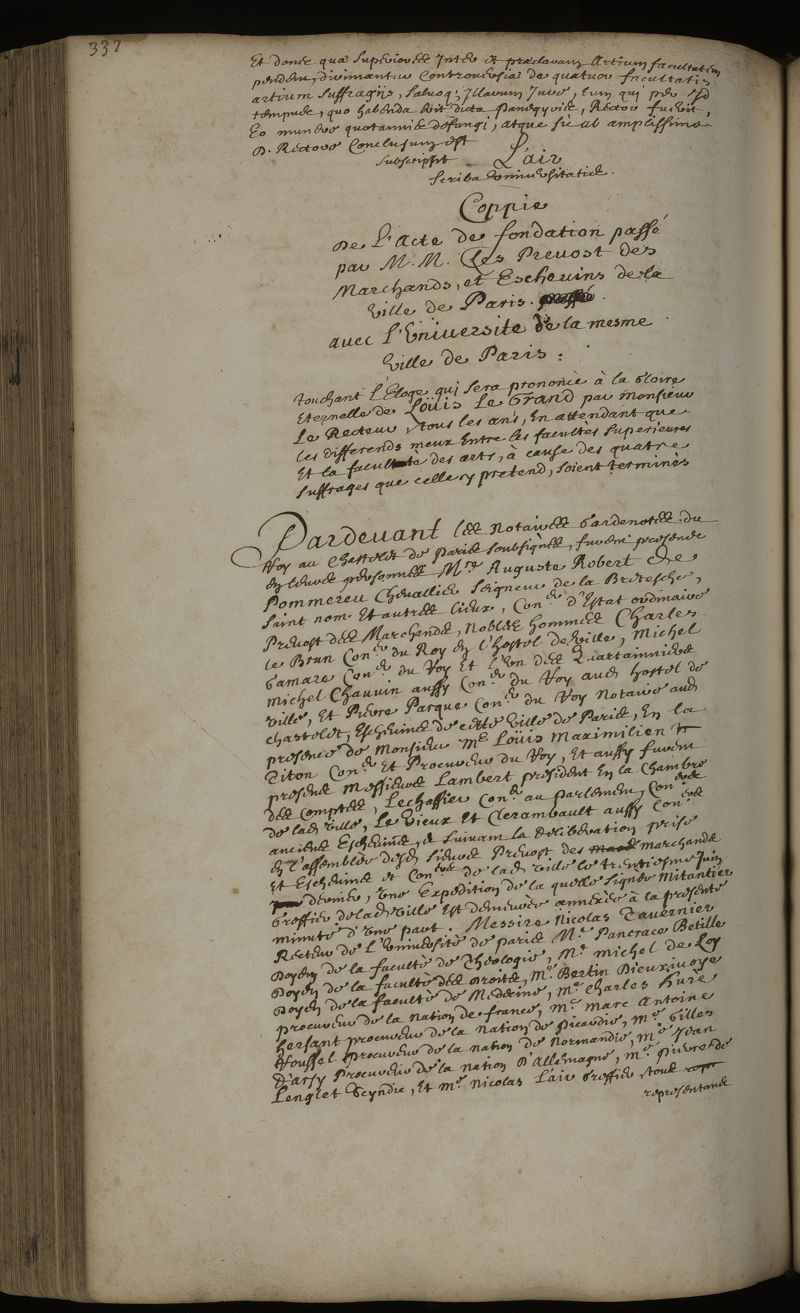 337
Et donec quæ Superiores Inter et præclaram Artium facultatem
pendem, dirimantur Controversia de quatuor facultatis
artium Suffragijs, Salvoq; Illarum Jure, Eum qui pro
tempore, quo habenda erit dicta Panegyris, Rector fuerit,
Eo munere quotannis defungi, atque sic ab amplissimo
D. Rectore Conclusum est
subscripsit - L'air
Scriba Universitatis.
Coppie
De L'Acte de fondation passé
par M. M. Les Prevost des
Marchands, et Eschevins de la
Ville de Paris.
avec L'Université de la mesme
Ville de Paris :
touchant L'Eloge qui sera prononcé à la Gloire
Eternelle de Loüis Le Grand par Monsieur
Le Recteur tous les ans, En attendant que
les differends meux Entre les facultés Superieures
Et la faculté des arts, à cause des quatre
suffrages que celle cy pretend, soient terminés
Pardevant les Notaires Gardenotes du
Roy au Chastelet de Paris soubsignés, furent presens
en leurs personnes Mre. Auguste Robert de
Pommereu Chevallier Seigneur de la Bretesche,
Saint nom Et autres lieux, Coner. d'Estat ordinaire
Prevost des Marchands, Nobles hommes Charles
le Brun Coner. du Roy en l'hostel de Ville, Michel
Gamare Coner. du Roy Et l'un des Quartainiers
Michel Chauvin aussy Coner. du Roy aud hostel de
Ville, Et Pierre Parque Coner. du Roy Notaire aud
chastelet, Eschevins de cette Ville de Paris, En la
presence de Monsieur Me Loüis Maximilien
Titon Coner. Et Procureur du Roy, Et aussy furent
presens Messieurs Lambert president En la Chambre
des Comptes, Lechassier Coner. au Parlement, Coners
de lad. Ville, Le Vieux Et Clerambault aussy Coners
anciens Eschevins, et suivant la deliberation prise
En l'assemblée desd. Sieurs Prevost des marchands
Et Eschevins et Coners de lad. Ville le trentiesme Juin
dernier, Une Expedition de la quelle signée Mitantier
Greffier de lad. Ville Est demeurée annexée à la presente
minute d'Une part. Messire Nicolas Tavernier
Recteur de L'Université de paris Me. Pancrace Betille
Doyen de la faculté de Theologie, Me. Michel de Loy
Doyen de la faculté des Droits, Me. Bertin Dieuxivoye
Doyen de la faculté de Medecine, Me. Charles Huré
procureur de la nation de france, Me. Marc Antoine
Hersant procureur de la Nation de Picardie, Me. Gilles
Houssel procureur de la nation de Normandie, Me. Jean
D'arsy Procureur de la nation d'Allemagne, Me. Pierre de
Lenglet Scyndic, Et Me. Nicolas L'air Greffier tous
representans